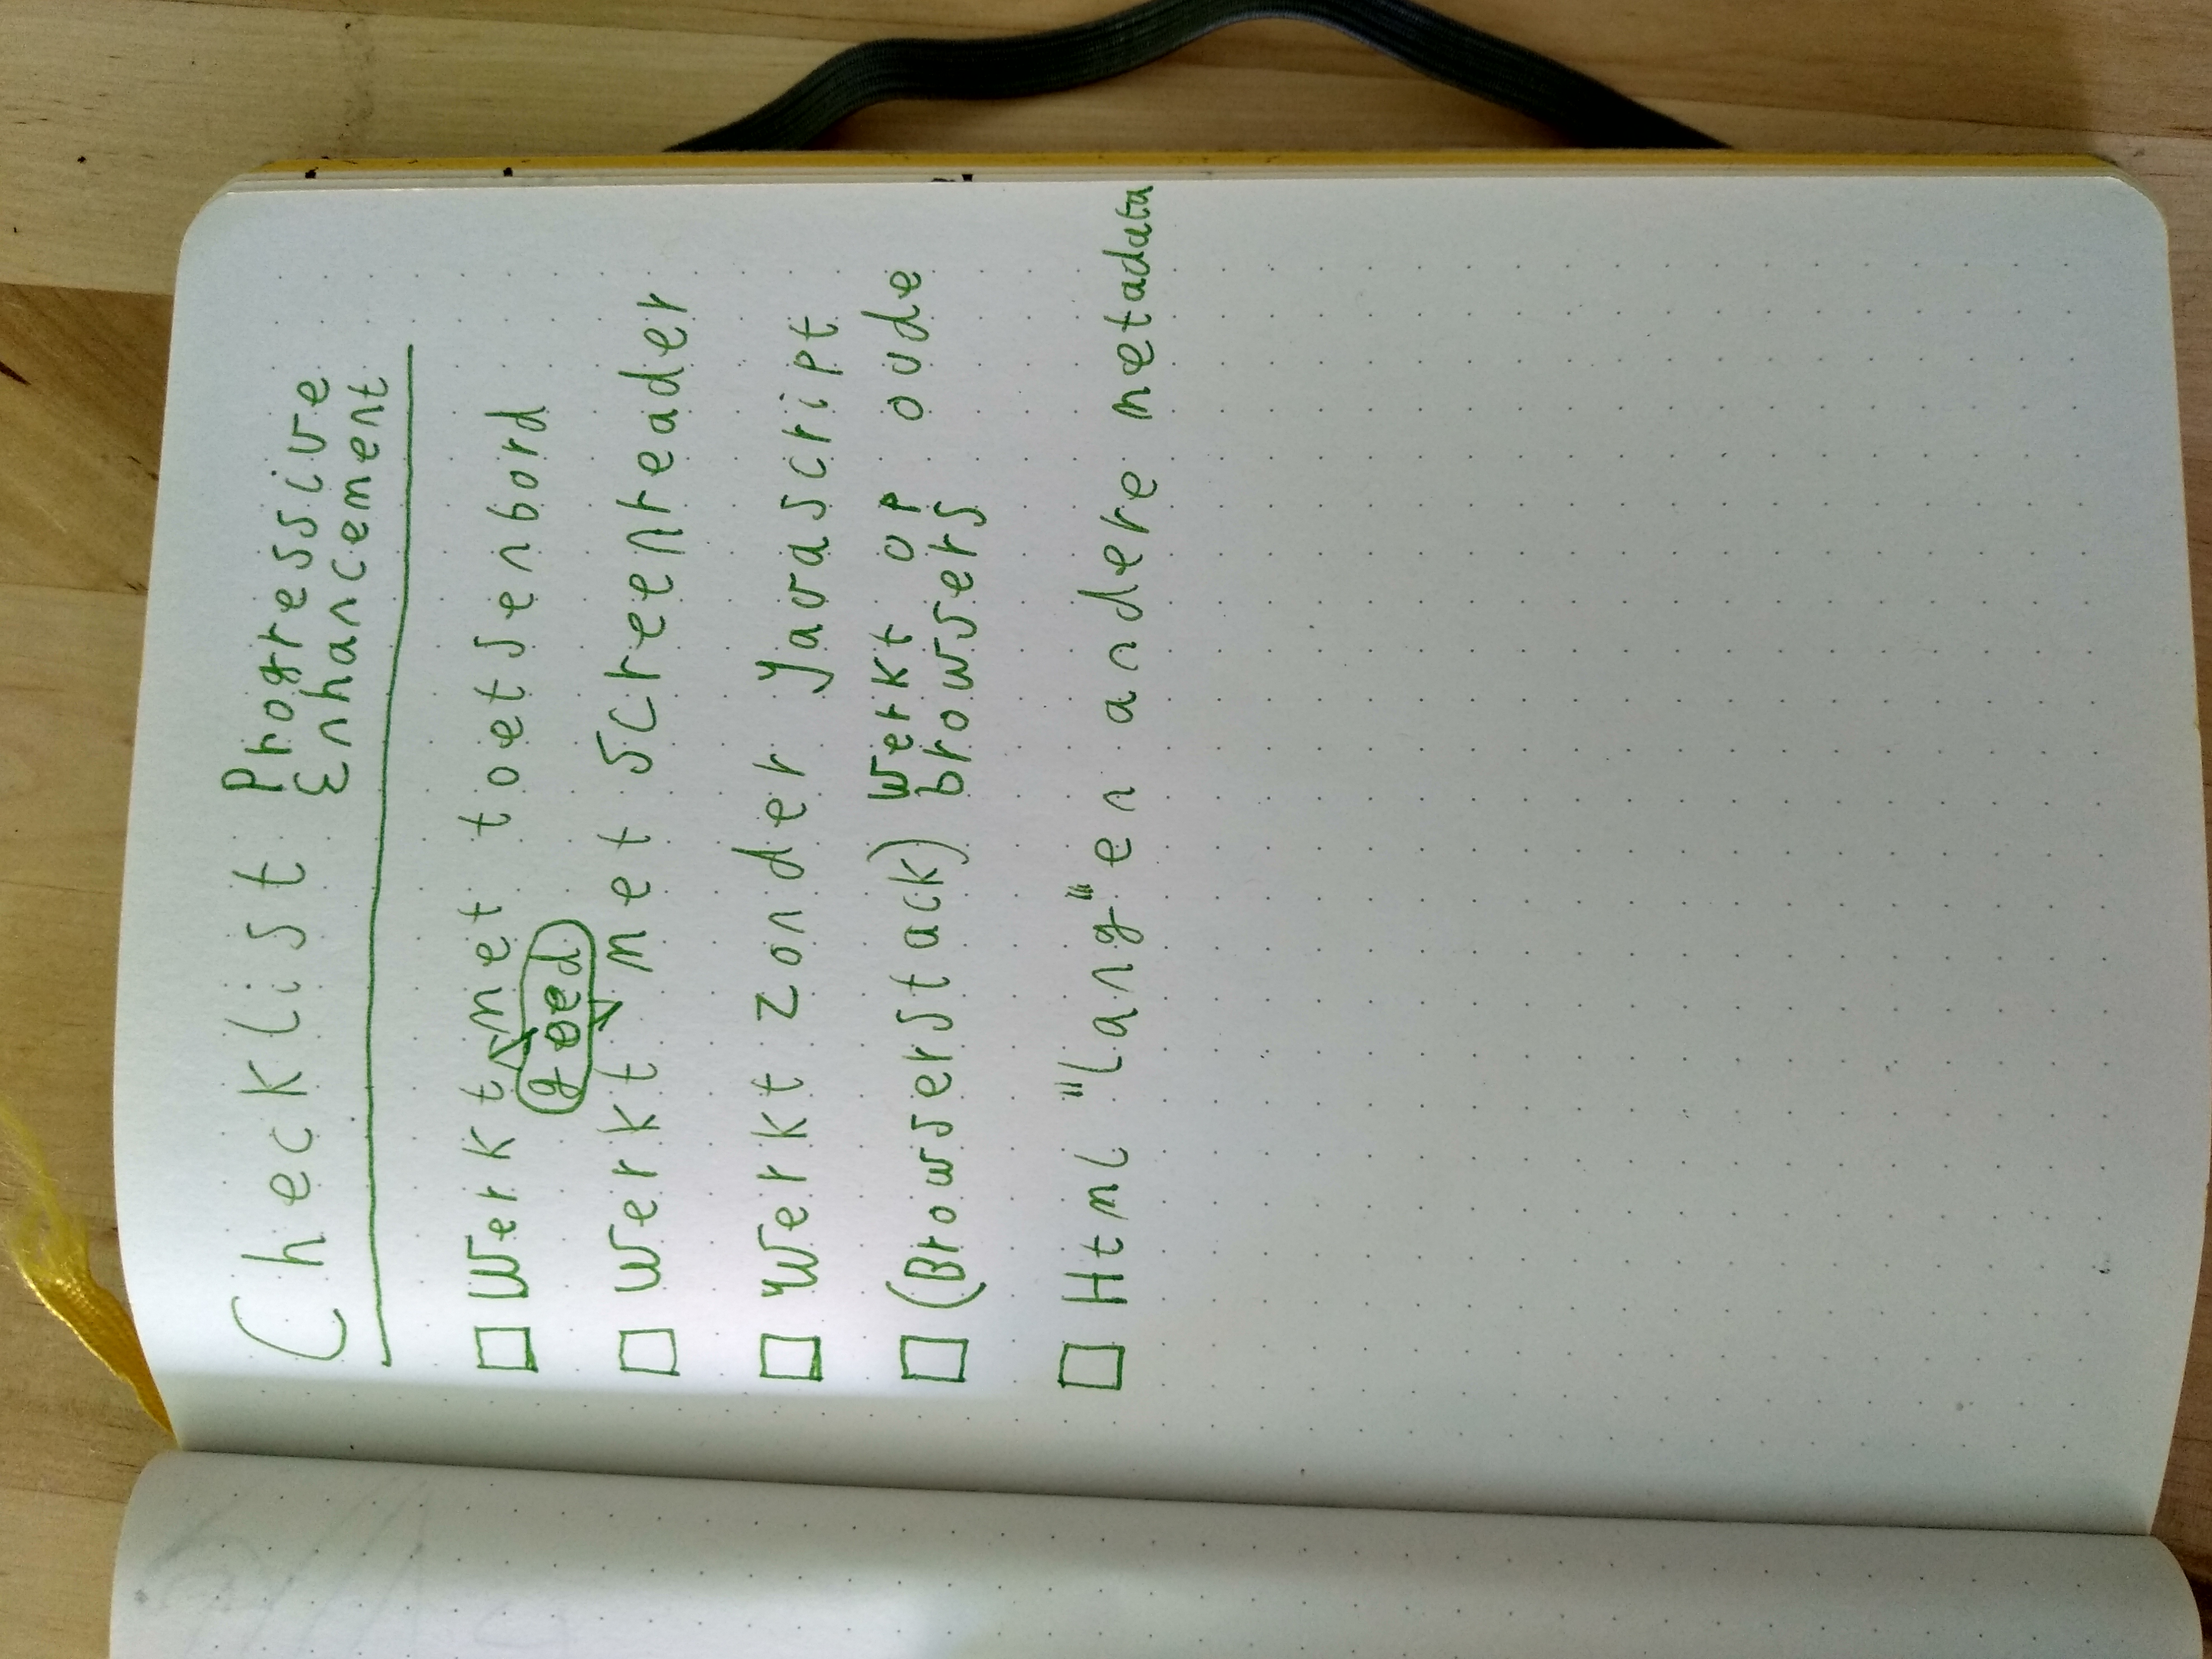 Checklist Progressive
Enhancement
Werkt met toetsenbord
goed
Werkt met screenreader
Werkt zonder Javascript
(BrowserStack) werkt op oude
browsers
Html "lang" en andere metadata